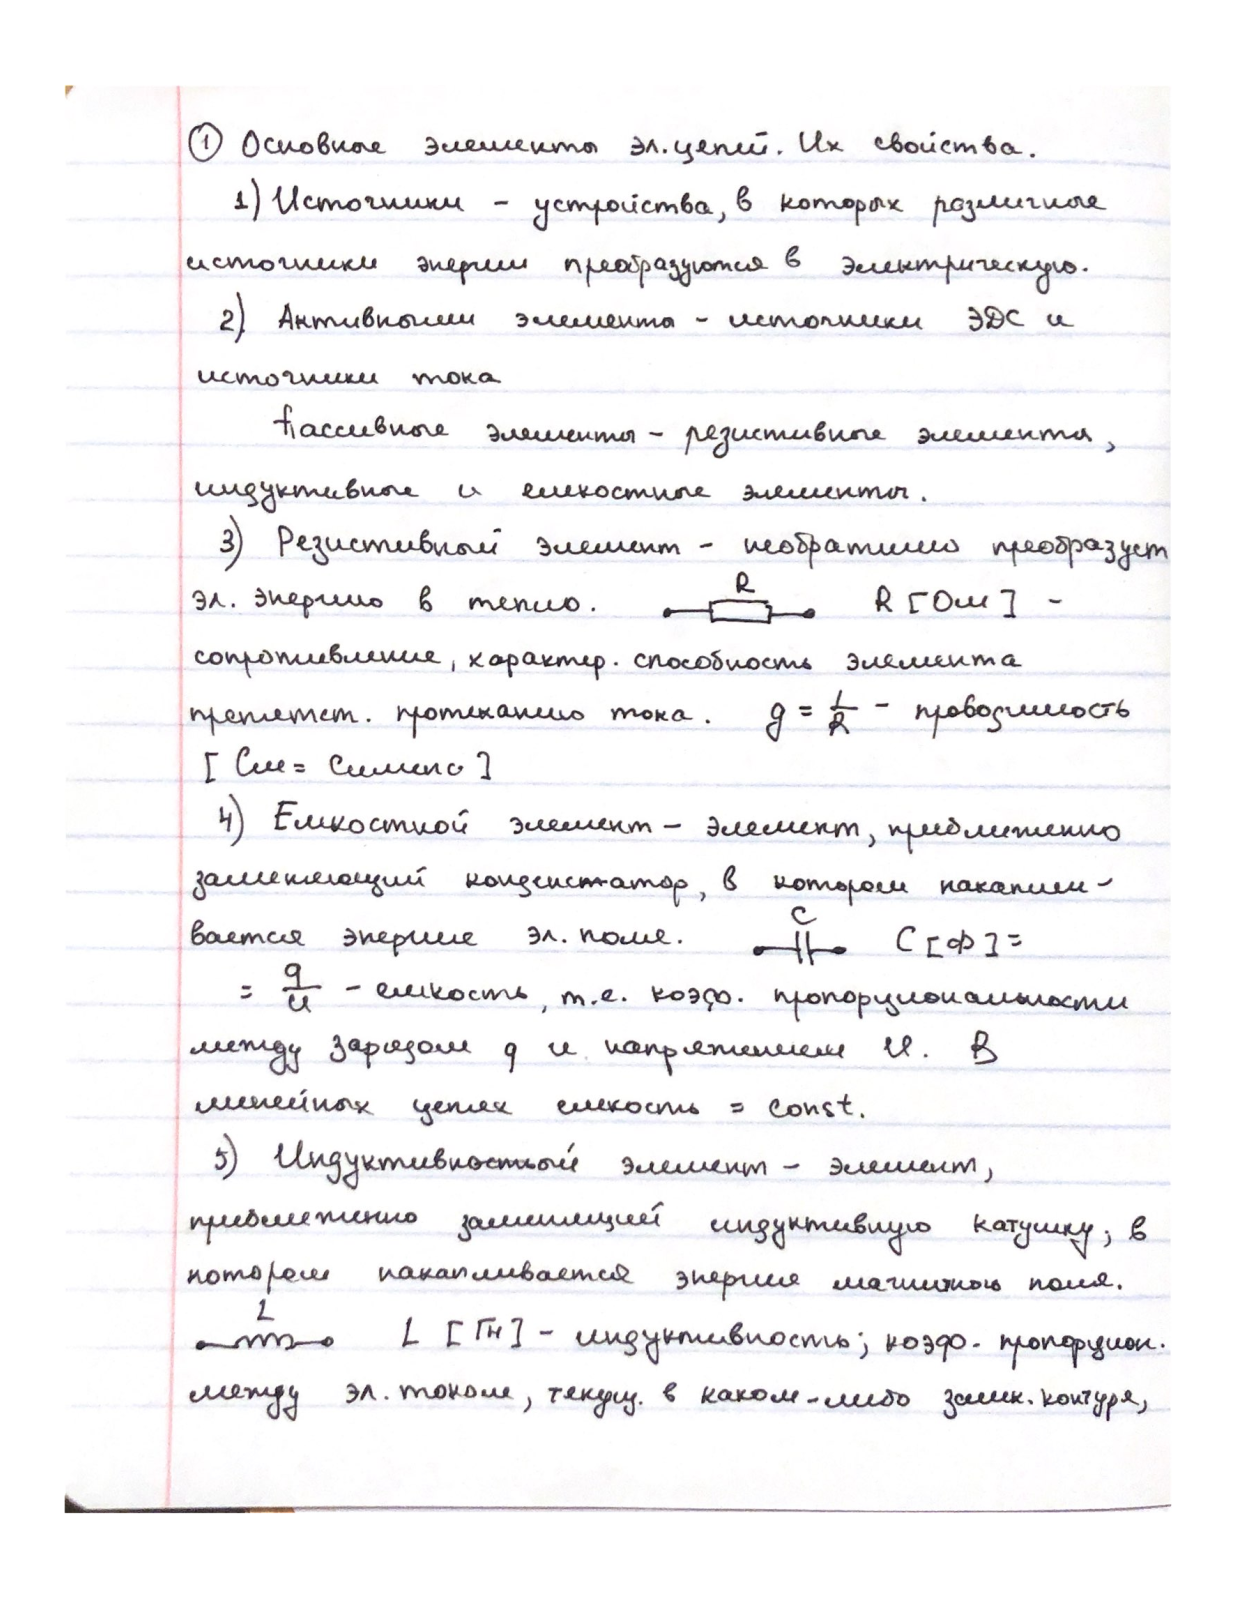 ① Основные элементы эл. цепей. Их свойства.
1) Источники - устройства, в которых различные
источники энергии преобразуются в электрическую.
2) Активными элементы - источники ЭДС и
источники тока
Пассивные элементы - резистивные элемента,
индуктивные и емкостные элементы.
3) Резистивный элемент - необратимо преобразует
эл. энергию в тепло. R R [Ом] -
сопротивление, характер. способность элемента
препятст. протеканию тока. g = 1/R - проводимость
[См = Сименс]
4) Емкостной элемент - элемент, приближенно
заменяющий конденсатор, в котором накапли-
вается энергия эл. поля. C C [Ф] =
= q/u - емкость, т.е. коэф. пропорциональности
между зарядом q и напряжением U. В
линейных цепях емкость = const.
5) Индуктивностный элемент - элемент,
приближенно заменяющий индуктивную катушку, в
котором накапливается энергия магнитного поля.
L L [Гн] - индуктивность; коэф. пропорцион.
между эл. током, текущ. в каком-либо замк. контуре,